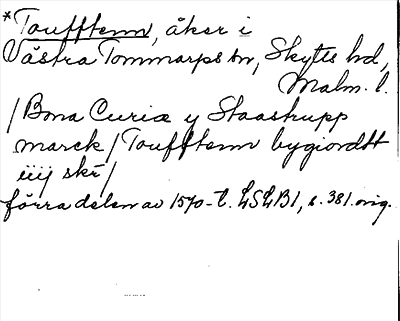 *Toufftenn, åker i
Västra Tommarps sn, Skytts hd,
Malm. l.
/Bona Curiæ y Staastrupp
marck/Toufftenn bygiordtt
iiij skr/
förra delen av 1570-t. LSLB1, s. 381. orig.